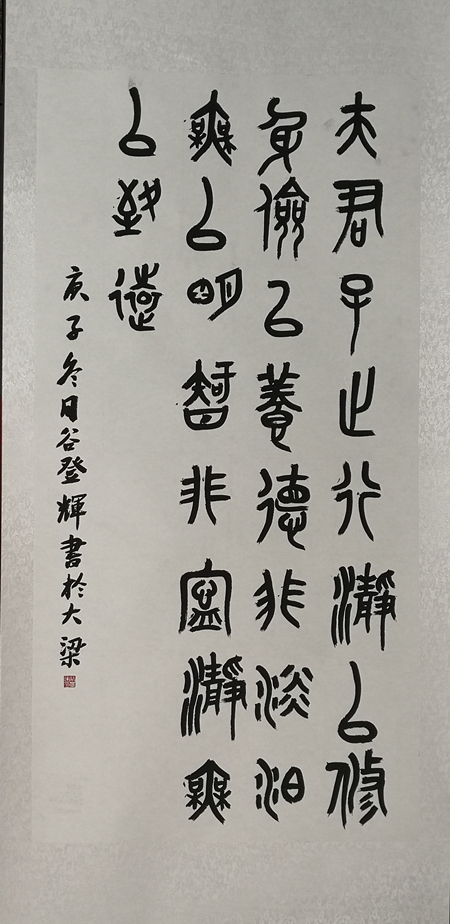 夫君子之行瀞以修
身儉以養德非淡泊
無以明智非寧瀞無
以致遠
庚子冬日谷登輝書於大梁